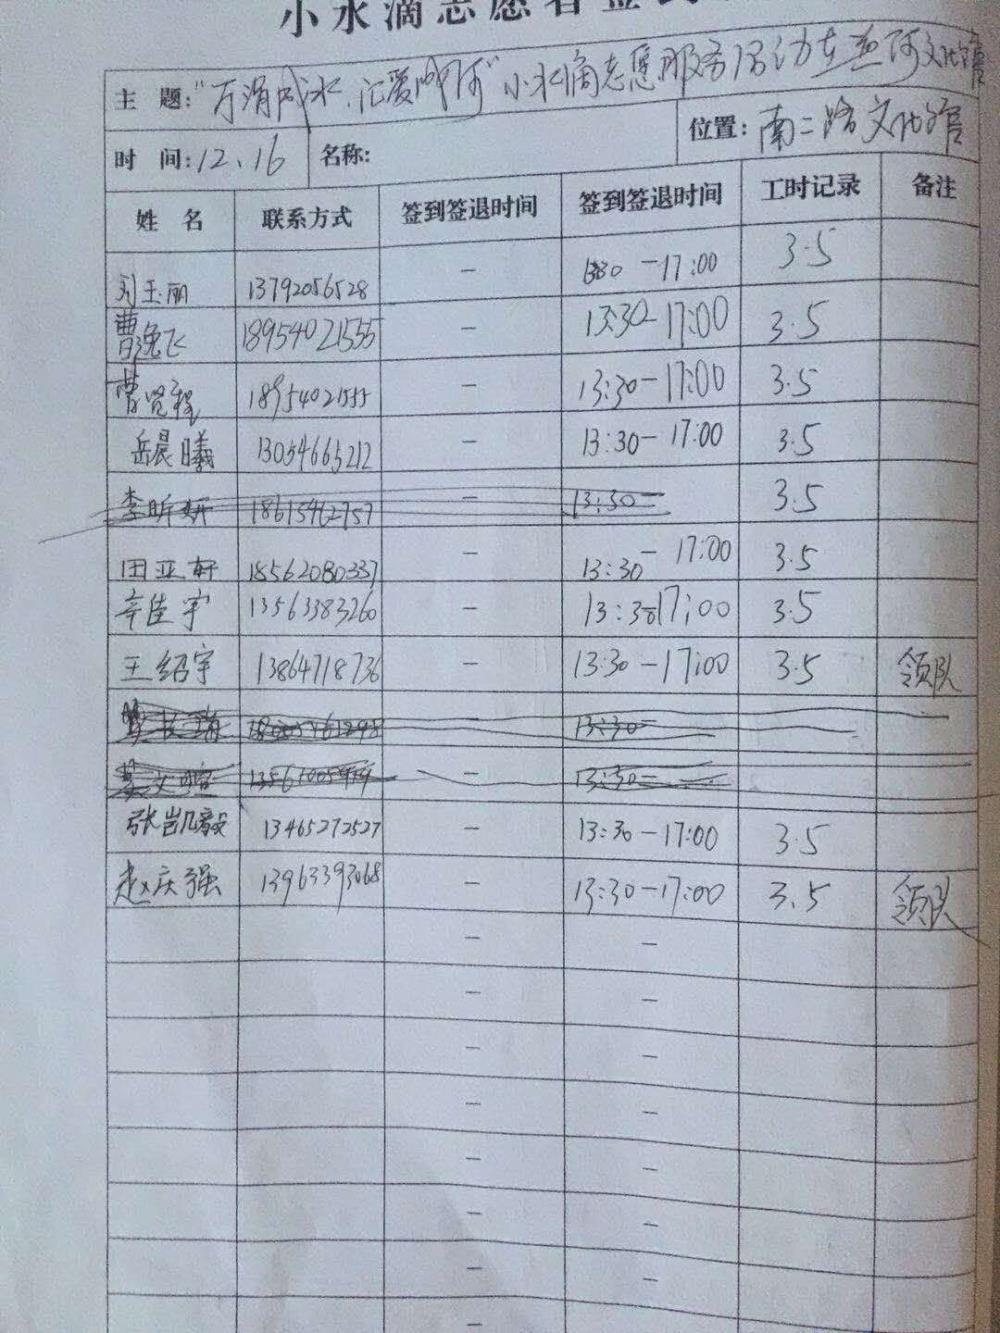 小水滴志愿者签到
主 题:"万涓成水,汇爱成河"小水滴志愿服务活动在垦河文化馆
时 间:12.16 名称: 位置:南二路文化馆
姓 名 联系方式 签到签退时间 签到签退时间 工时记录 备注
刘玉丽 13792056528 — 13:30 —17:00 3.5
曹逸飞 18954021555 — 13:30—17:00 3.5
曹贤程 18954021555 — 13:30—17:00 3.5
岳晨曦 13054663212 — 13:30—17:00 3.5
李昕妍 18615462757 — 13:30— 3.5
田亚轩 18562080337 — 13:30—17:00 3.5
辛佳宇 13563383260 — 13:30—17:00 3.5
王绍宇 13864718736 — 13:30—17:00 3.5 领队
— 13:30—
— 13:30—
张凯毅 13465272527 — 13:30—17:00 3.5
赵庆强 13963393068 — 13:30—17:00 3.5 领队
— —
— —
— —
— —
— —
— —
— —
—